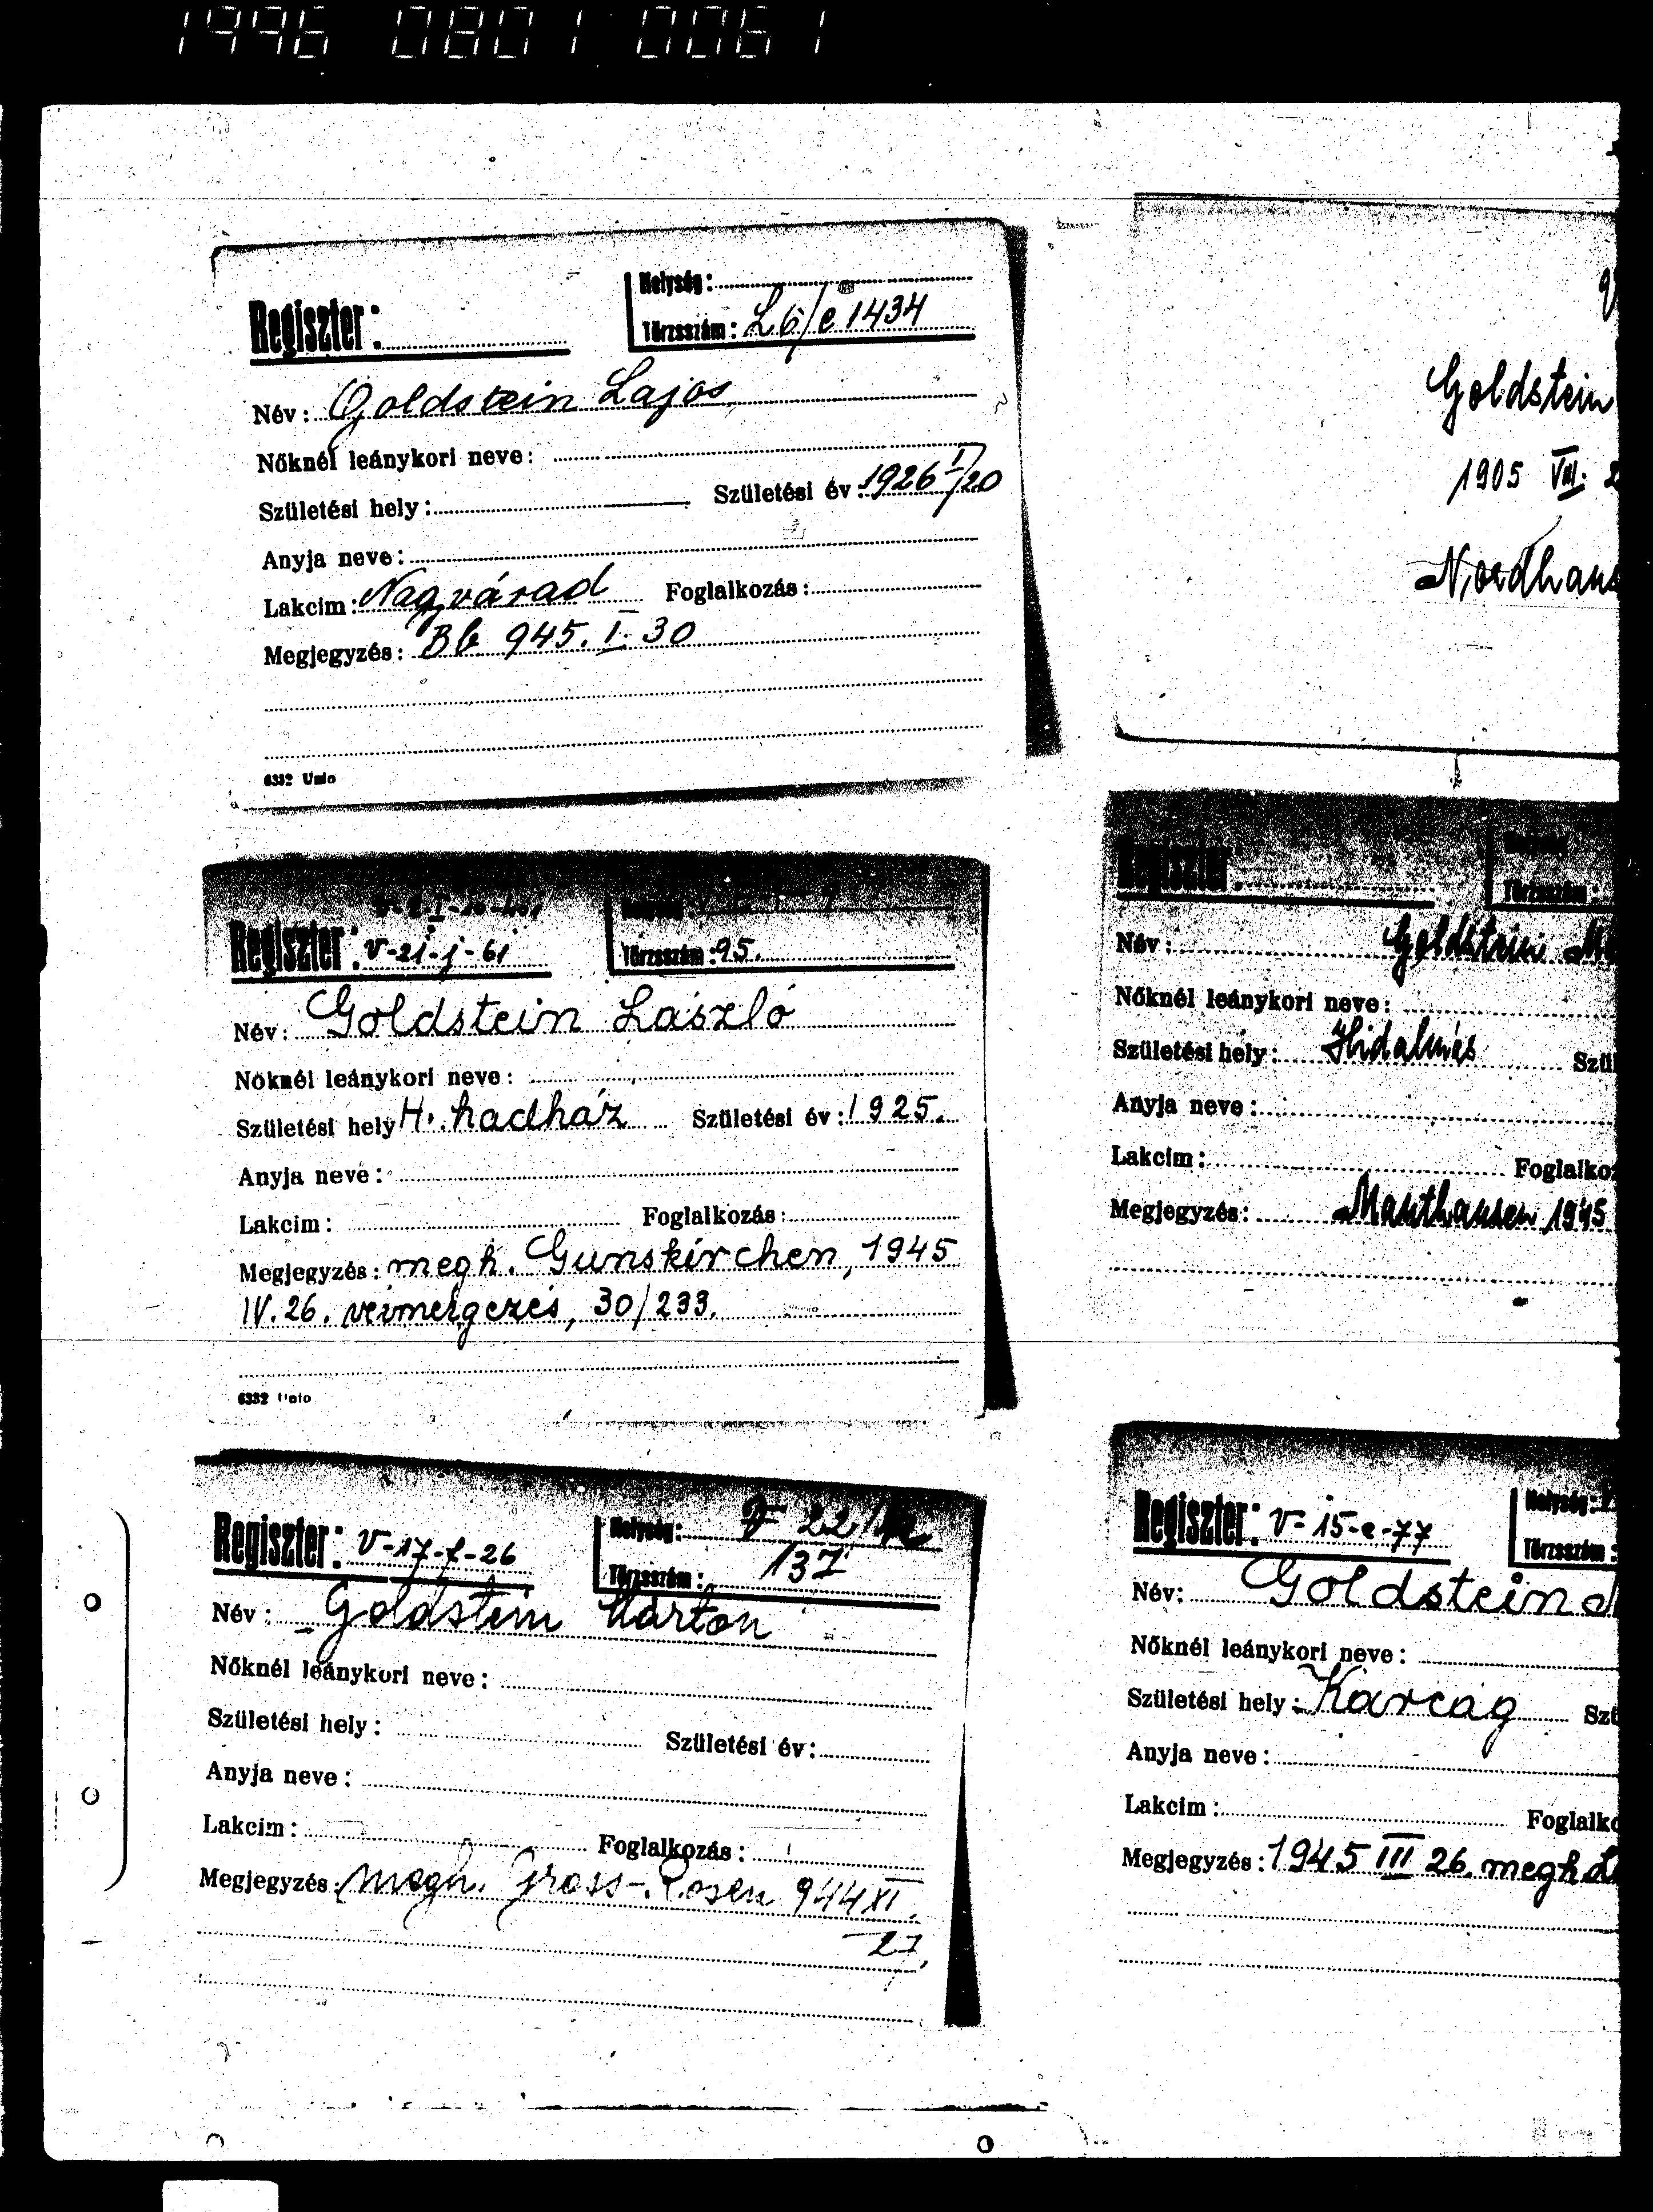 1996 0801 0061
Helység:
Regiszter:
Törzsszám: L6/e 1434
Név: Goldstein Lajos
Nőknél leánykori neve:
Születési hely: Születési év: 1926 I/20
Anyja neve:
Lakcim: Nagyvárad Foglalkozás:
Megjegyzés: Bb 945. I. 30
6332 Unio
Goldstein
1905 VIII. 2
Nordhaus
Helység:
Regiszter: V-21-j-61
Törzsszám: 95.
Név: Goldstein László
Nőknél leánykori neve:
Születési hely H. hadház Születési év: 1925.
Anyja neve:
Lakcim: Foglalkozás:
Megjegyzés: megh. Gunskirchen, 1945
IV. 26. vérmérgezés, 30/233.
6332 Unio
Regiszter
Törzsszám:
Név: Goldstein M
Nőknél leánykori neve:
Születési hely: Hidalmás Szül
Anyja neve:
Lakcim: Foglalkoz
Megjegyzés: Mauthausen 1945
Helység:
Regiszter: V-17-f-26
Törzsszám: 137
Név: Goldstein Márton
Nőknél leánykori neve:
Születési hely: Születési év:
Anyja neve:
Lakcim: Foglalkozás:
Megjegyzés: megh. Gross-Rosen 944 XI.
27.
Helység:
Regiszter: V-15-e-77
Törzsszám:
Név: Goldstein
Nőknél leánykori neve:
Születési hely: Karcag Szü
Anyja neve:
Lakcim: Foglalko
Megjegyzés: 1945 III 26. megh.